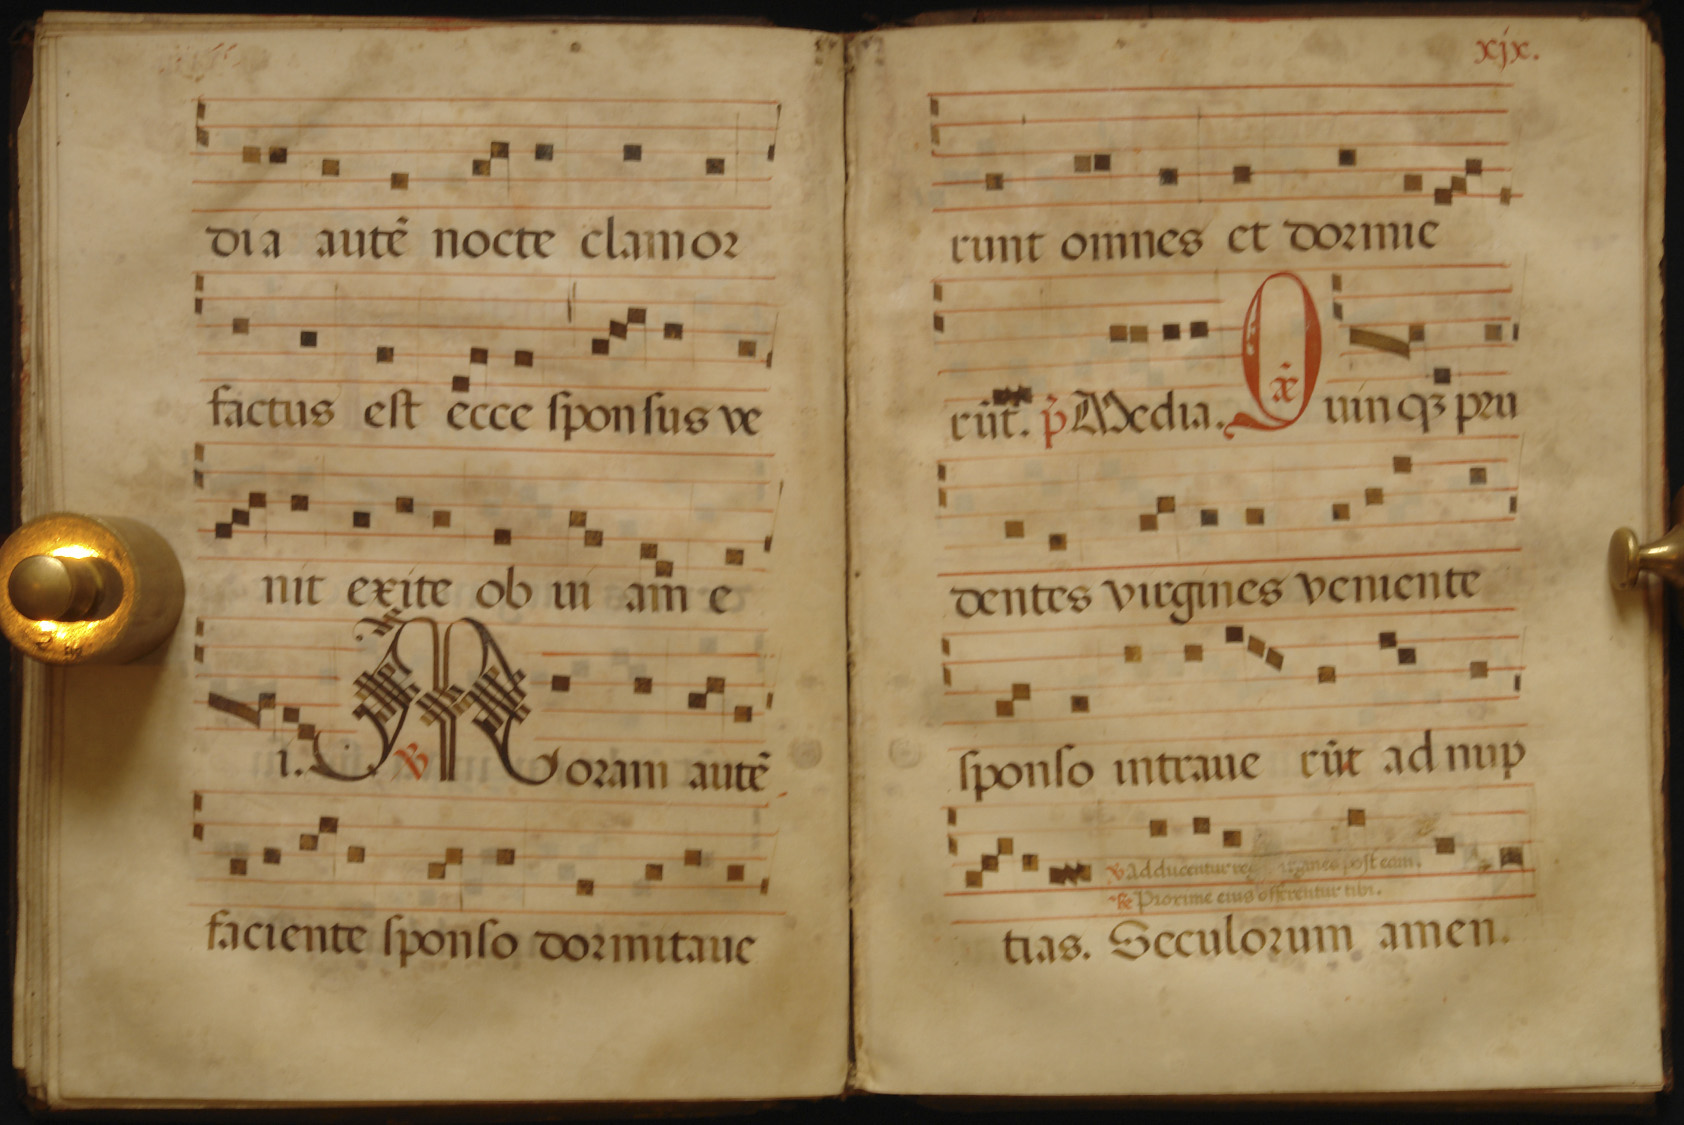 dia autẽ nocte clamor
factus est ecce sponsus ve
nit exite ob vi am e
i. ℣ Moram autẽ
faciente sponso dormitave
xjx.
runt omnes et dormie
rũt. p̃ Media. Quinqꝫ pru
dentes virgines veniente
sponso intraue rũt ad nup
℣ adducentur post eam.
℟ Proxime eius offerentur tibi.
tias. Seculorum amen.